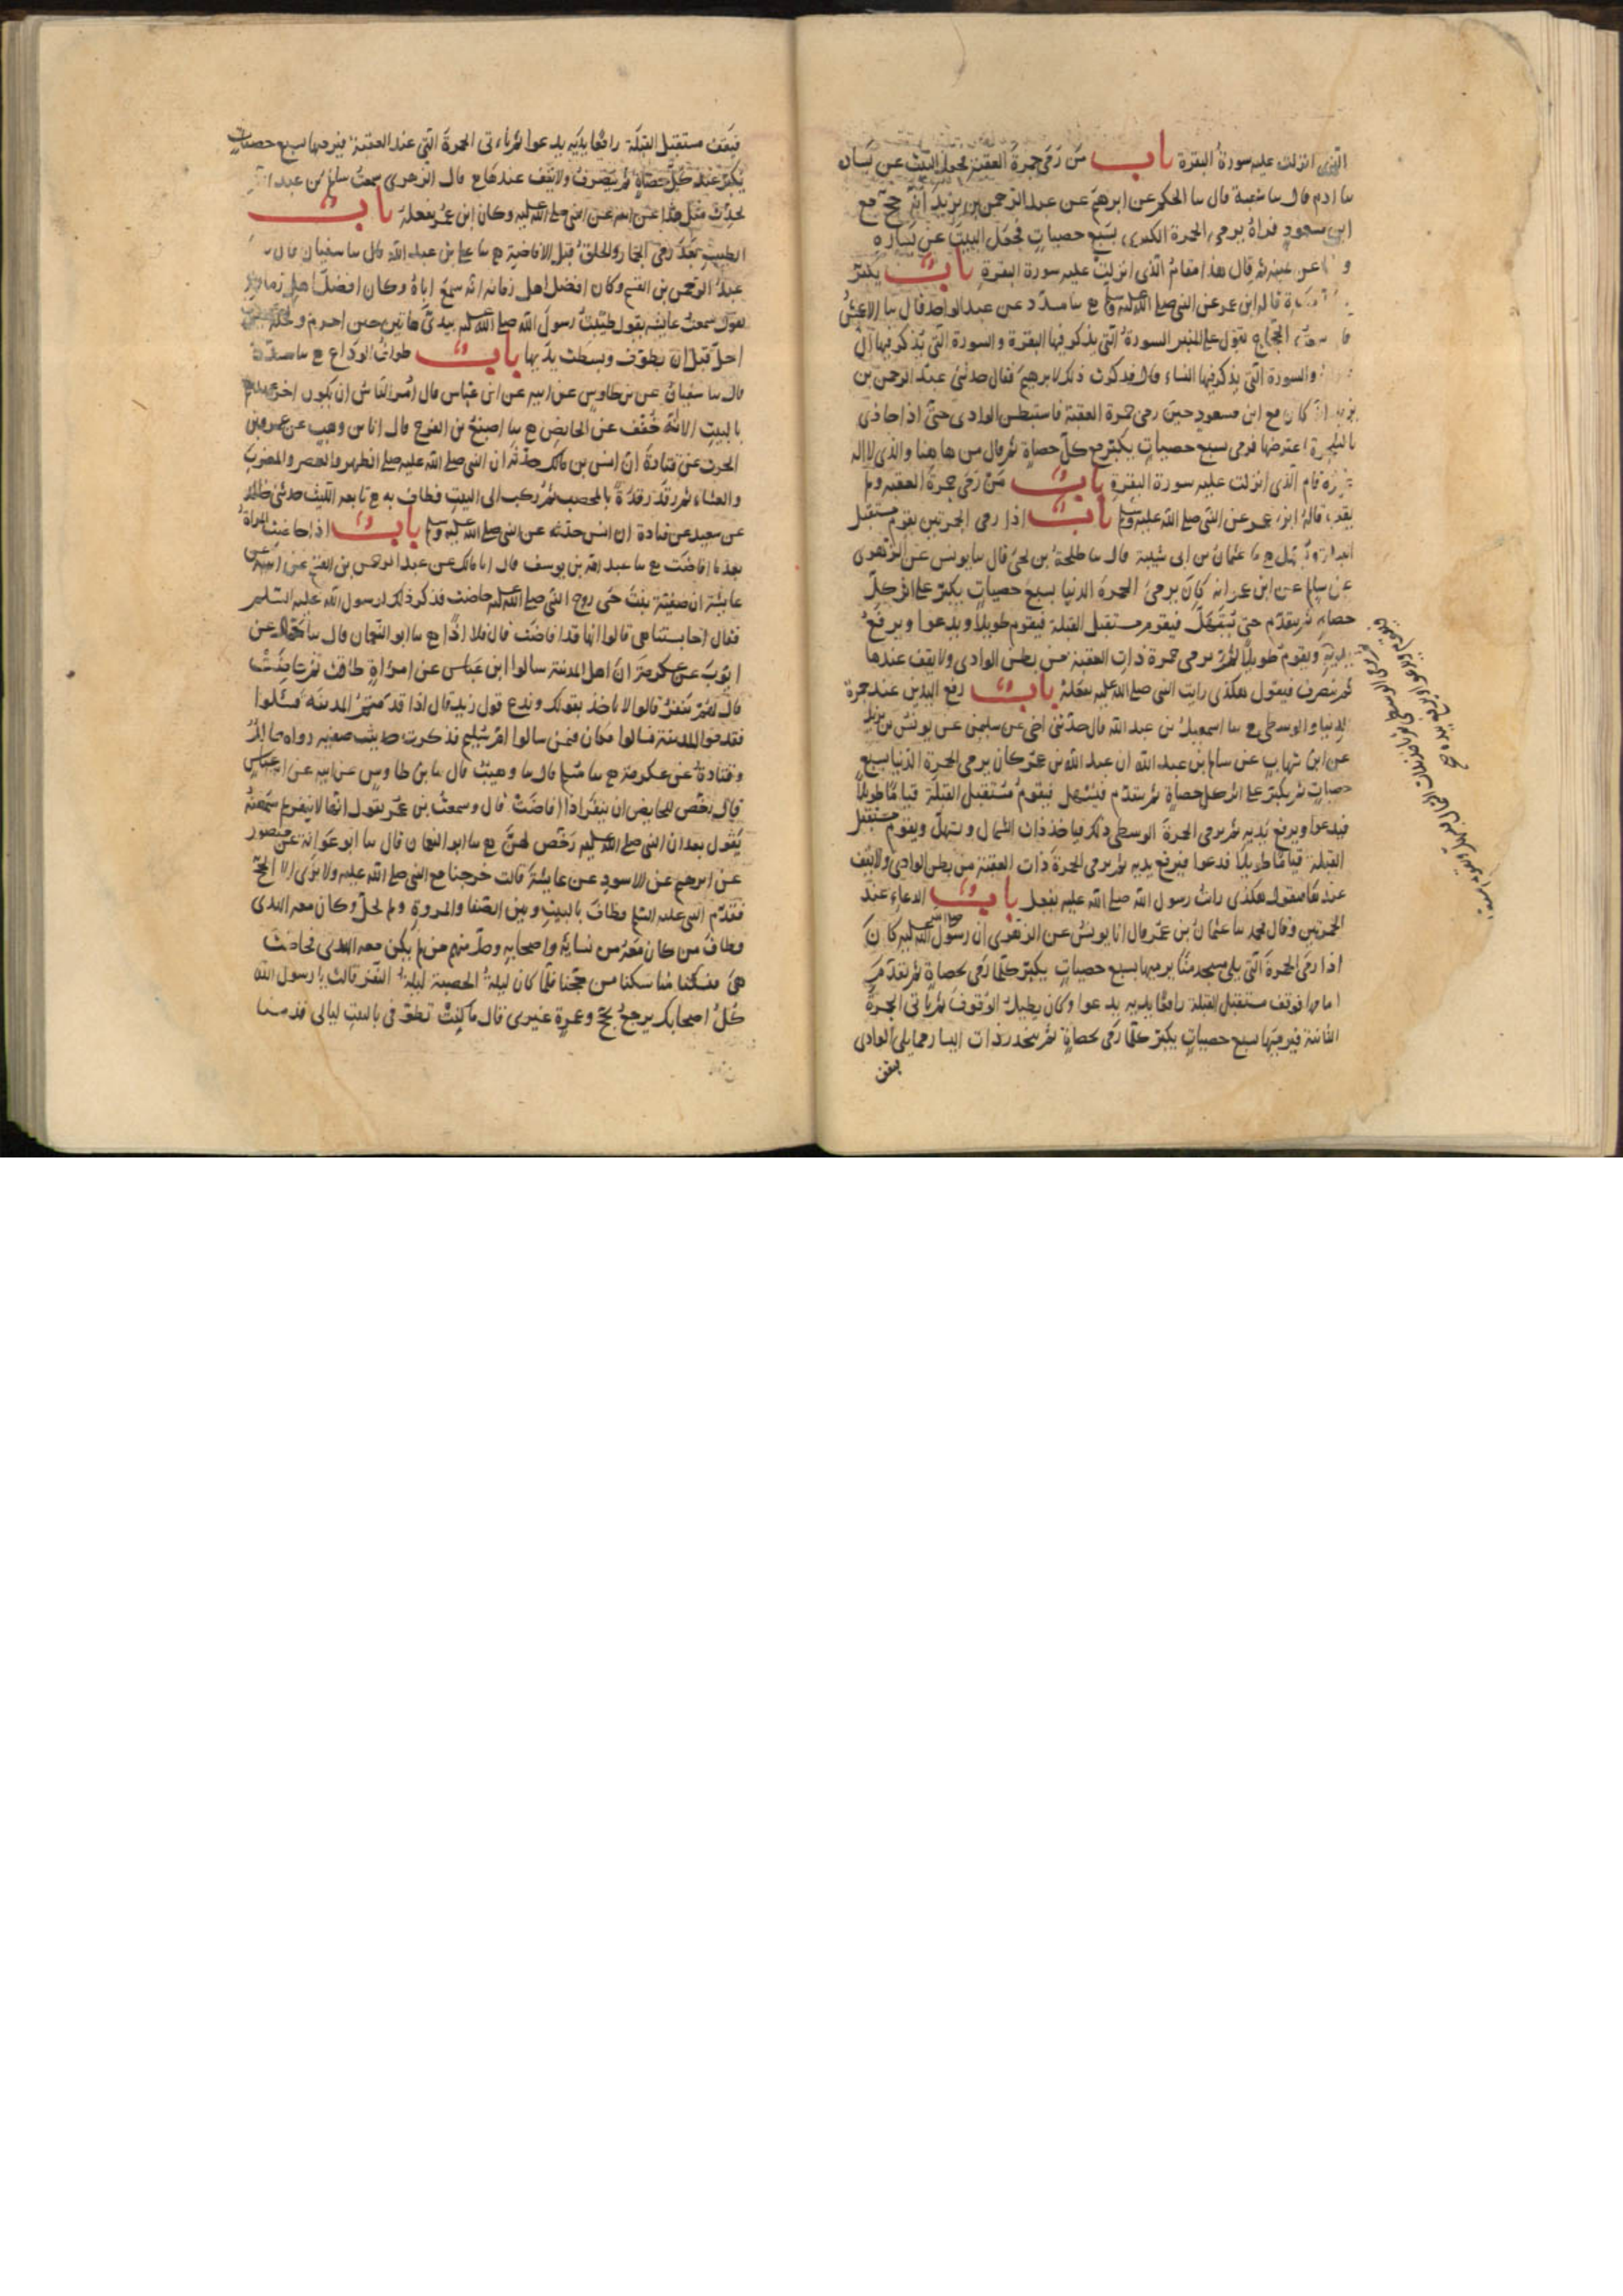 الذى انزلت عليه سورة البقرة باب من رمى جمرة العقبة فجعل البيت عن يساره
سا ادم قال سا شعبة قال سا الحكم عن ابرهيم عن عبد الرحمن بن يزيد انه حج مع
ابن مسعود فراه يرمى الجمرة الكبرى بسبع حصيات فجعل البيت عن يساره
و عن يمينه ثم قال هذا مقام الذى انزلت عليه سورة البقرة باب يكبر
قاله ابن عمر عن النبى صلى الله عليه وسلم ح سا مسدد عن عبد الواحد قال سا الاعمش
سمعت الحجاج يقول على المنبر السورة التى يذكر فيها البقرة والسورة التى يذكر فيها آل
والسورة التى يذكر فيها النساء قال فذكرت ذلك لابرهيم فقال حدثنى عبد الرحمن بن
يزيد انه كان مع ابن مسعود حين رمى جمرة العقبة فاستبطن الوادى حتى اذا حاذى
بالشجرة اعترضها فرمى بسبع حصيات يكبر مع كل حصاة ثم قال من هاهنا والذى لا اله
غيره قام الذى انزلت عليه سورة البقرة باب من رمى جمرة العقبة ولم
يقف قاله ابن عمر عن النبى صلى الله عليه وسلم باب اذا رمى الجمرتين يقوم مستقبل
القبلة ويسهل ح سا عثمان بن ابى شيبة قال سا طلحة بن يحيى قال سا يونس عن الزهرى
عن سالم عن ابن عمر انه كان يرمى الجمرة الدنيا بسبع حصيات يكبر على اثر كل
حصاة ثم يتقدم حتى يسهل فيقوم مستقبل القبلة فيقوم طويلا ويدعوا ويرفع
يديه ويقوم طويلا ثم يرمى جمرة ذات العقبة من بطن الوادى ولا يقف عندها
ثم ينصرف فيقول هكذى رايت النبى صلى الله عليه يفعله باب رفع اليدين عند جمرة
الدنيا والوسطى ح سا اسمعيل بن عبد الله قال حدثنى اخى عن سليمن عن يونس بن يزيد
عن ابن شهاب عن سالم بن عبد الله ان عبد الله بن عمر كان يرمى الجمرة الدنيا بسبع
حصيات ثم يكبر على اثر كل حصاة ثم يتقدم فيسهل فيقوم مستقبل القبلة قياما طويلا
فيدعوا ويرفع يديه ثم يرمى الجمرة الوسطى كذلك فياخذ ذات الشمال ويسهل ويقوم مستقبل
القبلة قياما طويلا فدعوا فيرفع يديه ثم يرمى الجمرة ذات العقبة من بطن الوادى ولا يقف
عندها فيقول هكذى رايت رسول الله صلى الله عليه يفعل باب الدعاء عند
الجمرتين وقال محمد سا عثمان بن عمر قال انا يونس عن الزهرى ان رسول الله صلى الله عليه كان
اذا رمى الجمرة التى يلى مسجد منا يرميها بسبع حصيات يكبر كلما رمى بحصاة ثم تقدم
امامها فوقف مستقبل القبلة رافعا يديه يدعوا وكان يطيل الوقوف ثم ياتى الجمرة
الثانية فيرميها بسبع حصيات يكبر كلما رمى بحصاة ثم ينحدر ذات اليسار مما يلى الوادى
فيقف
فيقف مستقبل القبلة رافعا يديه يدعوا ثم ياتى الجمرة التى عند العقبة فيرميها بسبع حصيات
يكبر عند كل حصاة ثم ينصرف ولا يقف عندها ح قال الزهرى سمعت سالم بن عبد الله
يحدث مثل هذا عن ابيه عن النبى صلى الله عليه وكان ابن عمر يفعله باب
الطيب بعد رمى الجمار والحلق قبل الافاضة ح سا على بن عبد الله قال سا سفيان قال سا
عبد الرحمن بن القسم وكان افضل اهل زمانه انه سمع اباه وكان افضل اهل زمانه
يقول سمعت عايشه يقول طيبت رسول الله صلى الله عليه بيدى هاتين حين احرم ولحله حين
احل قبل ان يطوف وبسطت يديها باب طواف الوداع ح سا مسدد
قال سا سفيان عن بن طاوس عن ابيه عن ابن عباس قال امر الناس ان يكون اخر عهدهم
بالبيت الا انه خفف عن الحايض ح سا اصبغ بن الفرج قال انا بن وهب عن عمرو بن
الحرث عن قتادة ان انس بن مالك حدثه ان النبى صلى الله عليه صلى الظهر والعصر والمغرب
والعشاء ثم رقد رقدة بالمحصب ثم ركب الى البيت فطاف به ح تابعه الليث حدثنى خالد
عن سعيد عن قتادة ان انس حدثه عن النبى صلى الله عليه وسلم باب اذا حاضت المراة
بعد ما افاضت ح سا عبد الله بن يوسف قال انا مالك عن عبد الرحمن بن القسم عن ابيه عن
عايشة ان صفية بنت حى زوج النبى صلى الله عليه حاضت فذكر ذلك لرسول الله عليه السلم
فقال احابستنا هى قالوا انها قد افاضت قال فلا اذا ح سا ابو النعمان قال سا حماد عن
ايوب عن عكرمة ان اهل المدينة سالوا ابن عباس عن امراة طافت ثم حاضت
قال لهم تنفر قالوا لا ناخذ بقولك وندع قول زيد قال اذا قدمتم المدينة فسئلوا
فقدموا المدينة فسالوا فكان فيمن سالوا ام سليم فذكرت حديث صفيه رواه خالد
وقتادة عن عكرمة ح سا مسلم قال سا وهيب قال سا بن طاوس عن ابيه عن ابن عباس
قال رخص للحايض ان تنفر اذا افاضت قال وسمعت بن عمر يقول انها لا تنفر ثم سمعته
يقول بعد ان النبى صلى الله عليه رخص لهن ح سا ابو النعمان قال سا ابو عوانة عن منصور
عن ابرهيم عن الاسود عن عايشة قالت خرجنا مع النبى صلى الله عليه ولا نرى الا الحج
فقدم النبى عليه السلم فطاف بالبيت وبين الصفا والمروة ولم يحل وكان معه الهدى
وطاف من كان معه من نسايه واصحابه وحل منهم من لم يكن معه الهدى فحاضت
هى فنسكنا مناسكنا من حجنا فلما كان ليلة الحصبة ليلة النفر قالت يا رسول الله
كل اصحابك يرجع بحج وعمرة غيرى قال ما كنت تطوفى بالبيت ليالى قدمنا